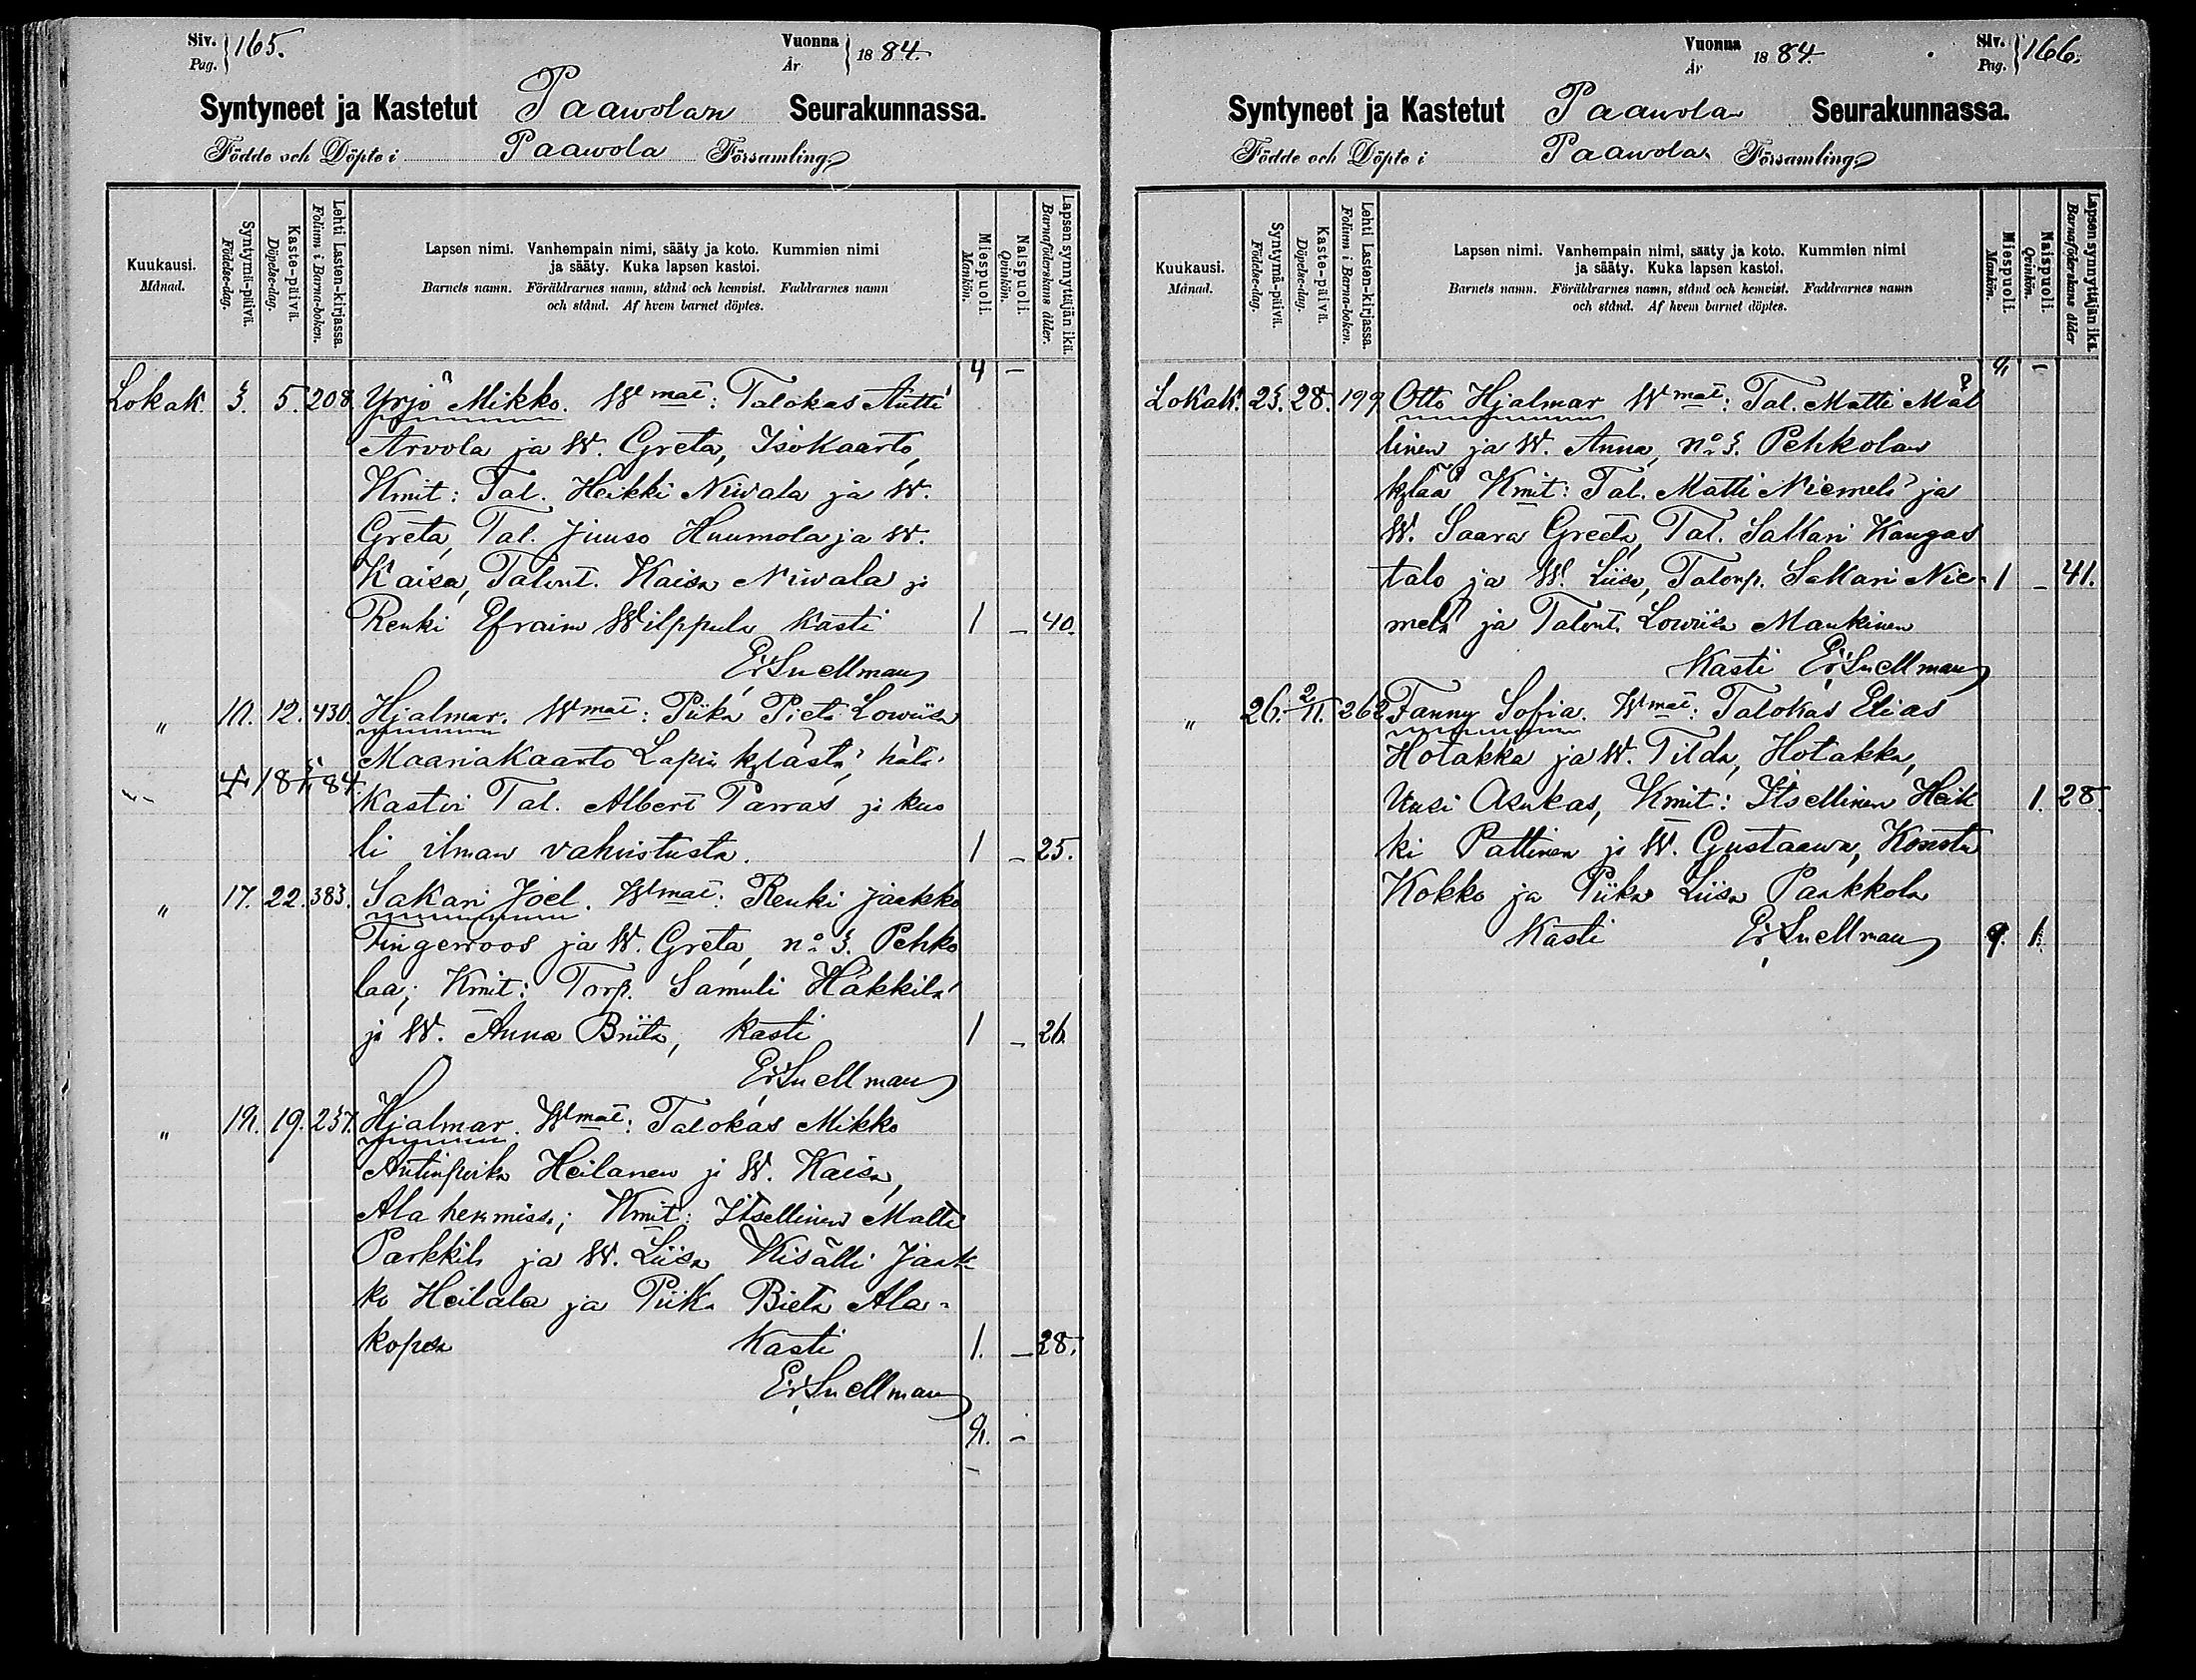 Siv. Pag. 165. Vuonna År 1884.
Syntyneet ja Kastetut Paawolan Seurakunnassa.
Födde och Döpte i Paawola Församling.
Kuukausi. Månad.
Syntymä-päivä. Födelse-dag.
Kaste-päivä. Döpelse-dag.
Lehti Lasten-kirjassa. Folium i Barna-boken.
Lapsen nimi. Vanhempain nimi, sääty ja koto. Kummien nimi
ja sääty. Kuka lapsen kastoi.
Barnets namn. Föräldrarnes namn, stånd och hemvist. Faddrarnes namn
och stånd. Af hvem barnet döptes.
Miespuoli. Mankön.
Naispuoli. Qvinkön.
Lapsen synnyttäjän ikä. Barnaföderskans ålder.
4 –
Lokak. 3. 5. 208. Yrjö Mikko. Wmat: Talokas Antti
Arvola ja W. Greta, Isokaarto,
Kmit: Tal. Heikki Niwala ja W.
Greta, Tal. Juuso Huumola ja W.
Kaisa, Talont. Kaisa Niwala ja
Renki Efraim Wilppula kasti 1 – 40.
E: Snellman
" 10. 12. 430. Hjalmar. Wmat: Piika Pieta Lowiisa
Maaria Kaarto Lapin kylästä, hätä
kastoi Tal. Albert Parras ja kuo
li ilman vahvistusta. 1 – 25.
" 17. 22. 383. Sakari Joel. Wmat: Renki Jaakko
Fingerroos ja W. Greta, no 3. Pehko
laa; Kmit: Torp. Samuli Häkkilä
ja W. Anna Briita, kasti 1 – 26.
E: Snellman
" 19. 19. 237. Hjalmar. Wmat: Talokas Mikko
Antinpoika Heilanen ja W. Kaisa,
Kmit: Itsellinen Matti
Parkkila ja W. Liisa Kisälli Jaak
ko Heilala ja Piika Bieta Ala-
kopsa Kasti 1. – 28.
E: Snellman
9. –
Vuonna År 1884. Siv. Pag. 166.
Syntyneet ja Kastetut Paawolan Seurakunnassa.
Födde och Döpte i Paawola Församling.
Kuukausi. Månad.
Syntymä-päivä. Födelse-dag.
Kaste-päivä. Döpelse-dag.
Lehti Lasten-kirjassa. Folium i Barna-boken.
Lapsen nimi. Vanhempain nimi, sääty ja koto. Kummien nimi
ja sääty. Kuka lapsen kastoi.
Barnets namn. Föräldrarnes namn, stånd och hemvist. Faddrarnes namn
och stånd. Af hvem barnet döptes.
Miespuoli. Mankön.
Naispuoli. Qvinkön.
Lapsen synnyttäjän ikä. Barnaföderskans ålder
Lokak. 23. 28. 199 Otto Hjalmar Wmat: Tal. Matti Mäl
linen ja W. Anna, no 3. Pehkolan
kylää Kmit: Tal. Matti Niemelä ja
W. Saara Greeta, Tal. Sakari Kangas
talo ja W. Liisa, Talonp. Sakari Nie- 1 – 41.
melä ja Talont. Lowiisa Mankinen
Kasti E: Snellman
" 26. 2/11. 262 Fanny Sofia. Wmat: Talokas Elias
Hotakka ja W. Tilda, Hotakka,
Uusi Asukas, Kmit: Itsellinen Heik 1. 28.
ki Pattinen ja W. Gustaawa, Kousta
Kokko ja Piika Liisa Paakkola
Kasti E: Snellman 9. 1.